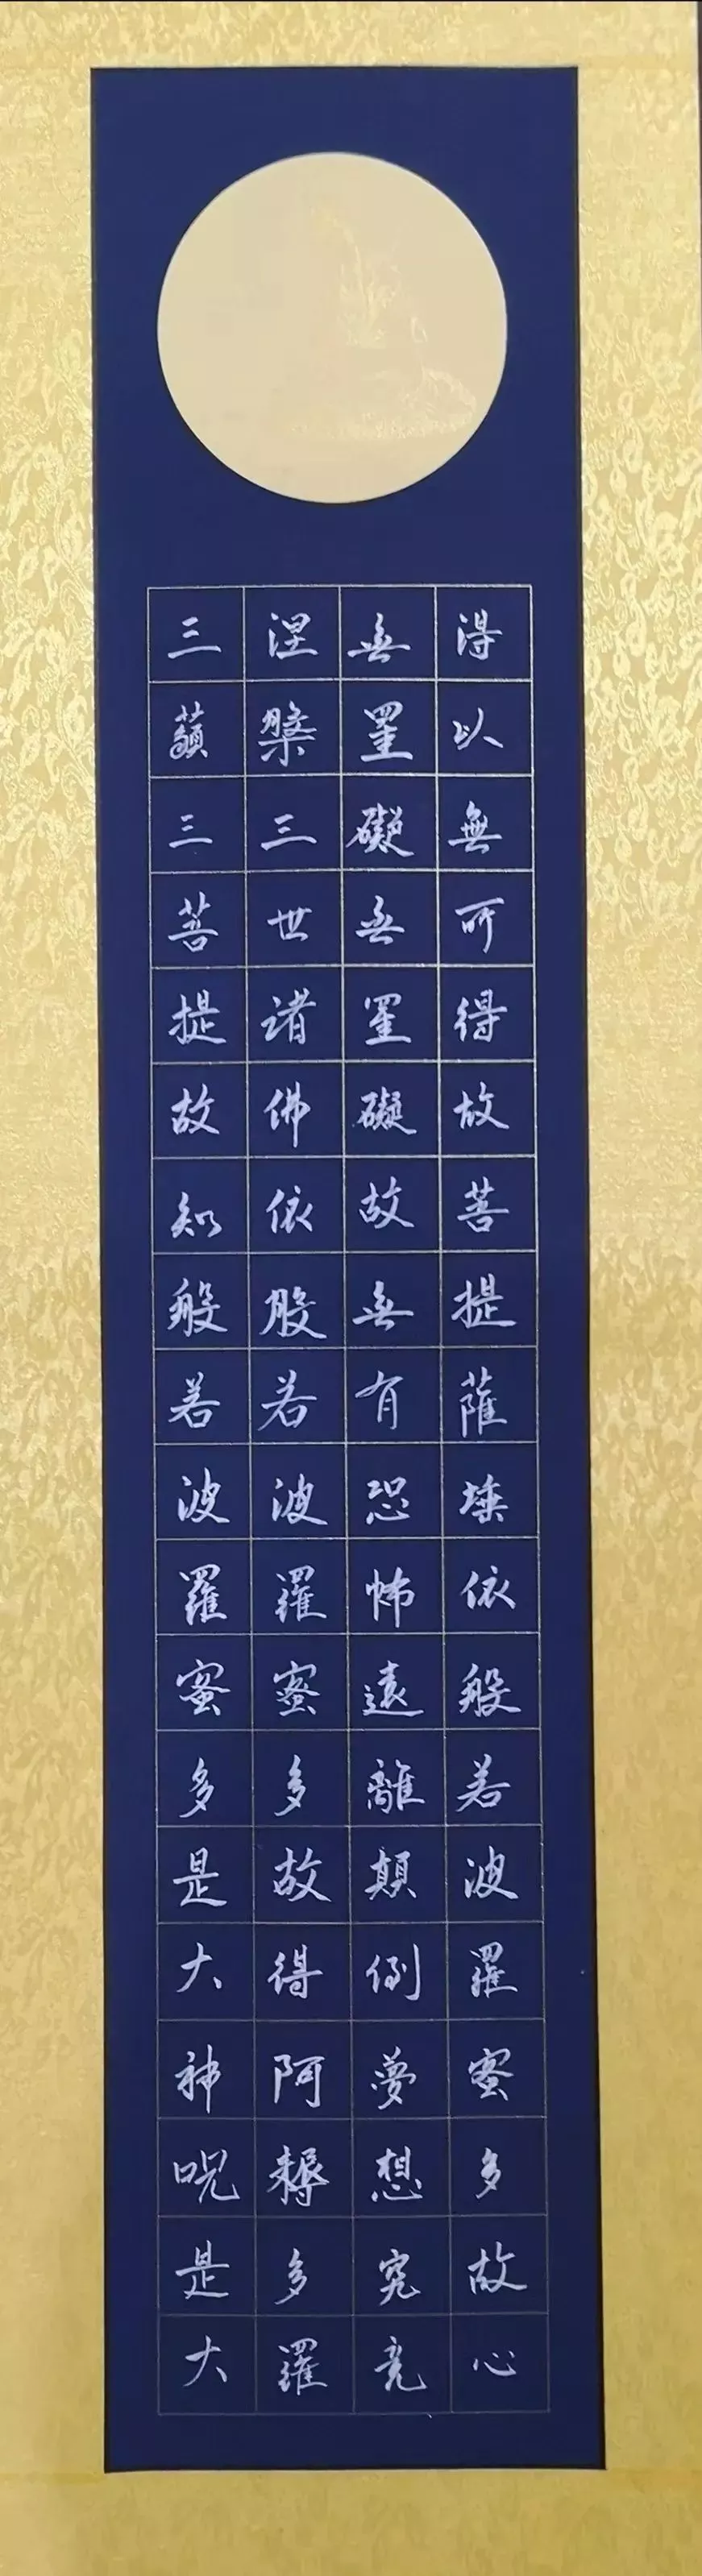 得以無所得故菩提薩埵依般若波羅蜜多故心
無罣礙無罣礙故無有恐怖遠離顛倒夢想究竟
涅槃三世諸佛依般若波羅蜜多故得阿耨多羅
三藐三菩提故知般若波羅蜜多是大神呪是大